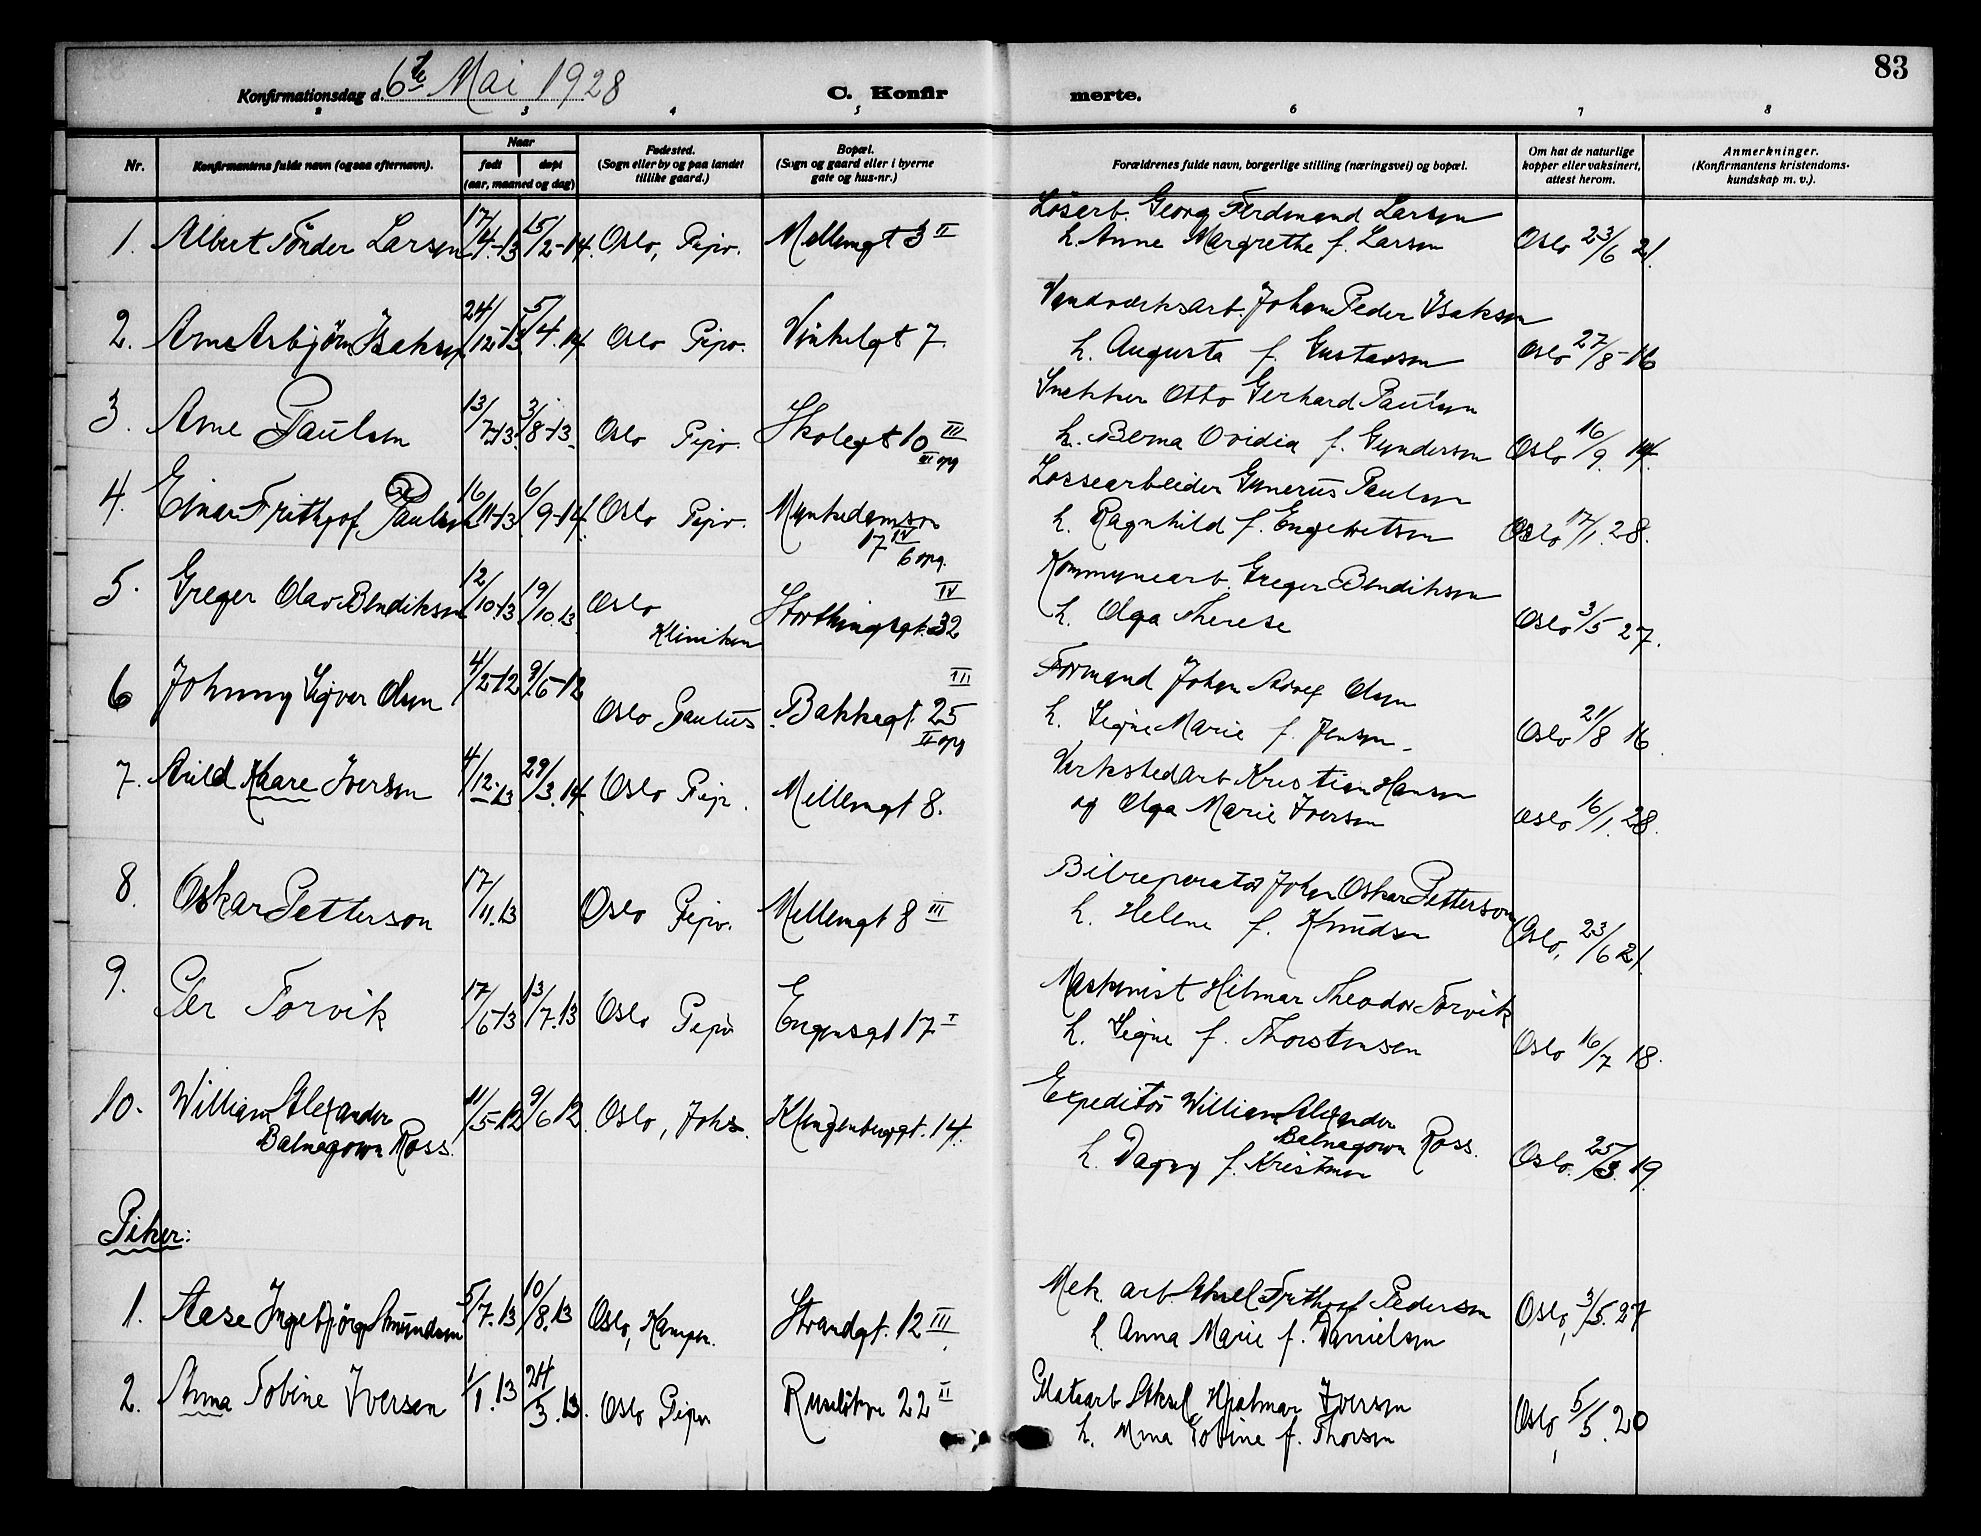 83
Konfirmationsdag d. 6te Mai 1928
C. Konfirmerte.
2 3 4 5 6 7 8
Nr.
Konfirmantens fulde navn (ogsaa efternavn).
Naar
født døpt
(aar, maaned og dag)
Fødested.
(Sogn eller by og paa landet
tillike gaard.)
Bopæl.
(Sogn og gaard eller i byerne
gate og hus-nr.)
Forældrenes fulde navn, borgerlige stilling (næringsvei) og bopæl.
Om hat de naturlige
kopper eller vaksinert,
attest herom.
Anmerkninger.
(Konfirmantens kristendoms-
kundskap m. v.).
1. Albert Tönder Larsen 17/4-13 15/2-14. Oslo, Pipv. Mellemgt 3 II
Løsarb. Georg Ferdinand Larsen
h. Anne Margrethe f. Larsen Oslo 23/6 21.
2. Arne Asbjörn Isaksen 24/12-13 5/4. 14 Oslo Pipv. Vinkelgt 7
Vandverksarb. Johan Peder Isaksen
h. Augusta f. Gustavsen Oslo 27/8-16
3. Arne Paulsen 13/7-13. 3/8-13. Oslo Pipv. Skolegt 10 III
III opg
Snekker Otto Gerhard Paulsen
h. Berna Ovidia f. Gundersen Oslo 16/9. 14.
4. Einar Frithjof Paulsen 16/11-13 6/9-14. Oslo Pipv. Munkedamsv
17 IV
6 opg.
Lossearbeider Gunerius Paulsen
h. Ragnhild f. Engebretsen Oslo 17/1. 28.
5. Greger Olav Bendiksen 12/10-13 19/10. 13. Oslo
Kliniken
Storthingsgt. 32 IV
Kommunearb. Greger Bendiksen
h. Olga Therese Oslo 3/5 27.
6 Johnny Sigvar Olsen 4/2-12 9/6-12 Oslo Paulus. Bakkegt 25 III
II opg
Formand Johan Olsen
h. Signe Marie f. Jensen. Oslo 21/8 16
7. Kaare Iversen 4/12.13 29/3. 14. Oslo Pipv. Mellemgt 8.
Verkstedarb Kristian Hansen
og Olga Marie Iversen Oslo 16/1. 28.
8. Oskar Petterson 17/11. 13 Oslo Pipv. Mellemgt 8 III
Bilreperatör Johan Oskar Petterson
h. Helene f. Knudsen Oslo, 23/6 21.
9. Per Torvik 17/6-13 13/7. 13 Oslo Pipv Engensgt 17 I
Maskinist Hilmar Theodor Torvik
h. Signe f. Thorstensen Oslo 16/7 18.
10. William Alexander
Balnagown Ross. 11/5-12 9/6 12. Oslo, Johs. Klingenberggt. 14.
Expeditör William Alexander
Balnagown Ross.
h. Dagny f. Kristensen Oslo. 25/3. 19.
Piker:
1. Aase Ingebjörg Amundsen 5/7. 13 10/8. 13 Oslo, Kampen. Strandgt. 12 III
Mek. arb. Aksel Frithjof Pedersen
h. Anna Marie f. Danielsen Oslo, 3/5. 27
2. Anna Tobine Iversen 1/1. 13 24/3. 13. Oslo Pipv 22 II
Platearb Aksel Hjalmar Iversen
h. Tobine f. Thorsen Oslo, 5/5. 20